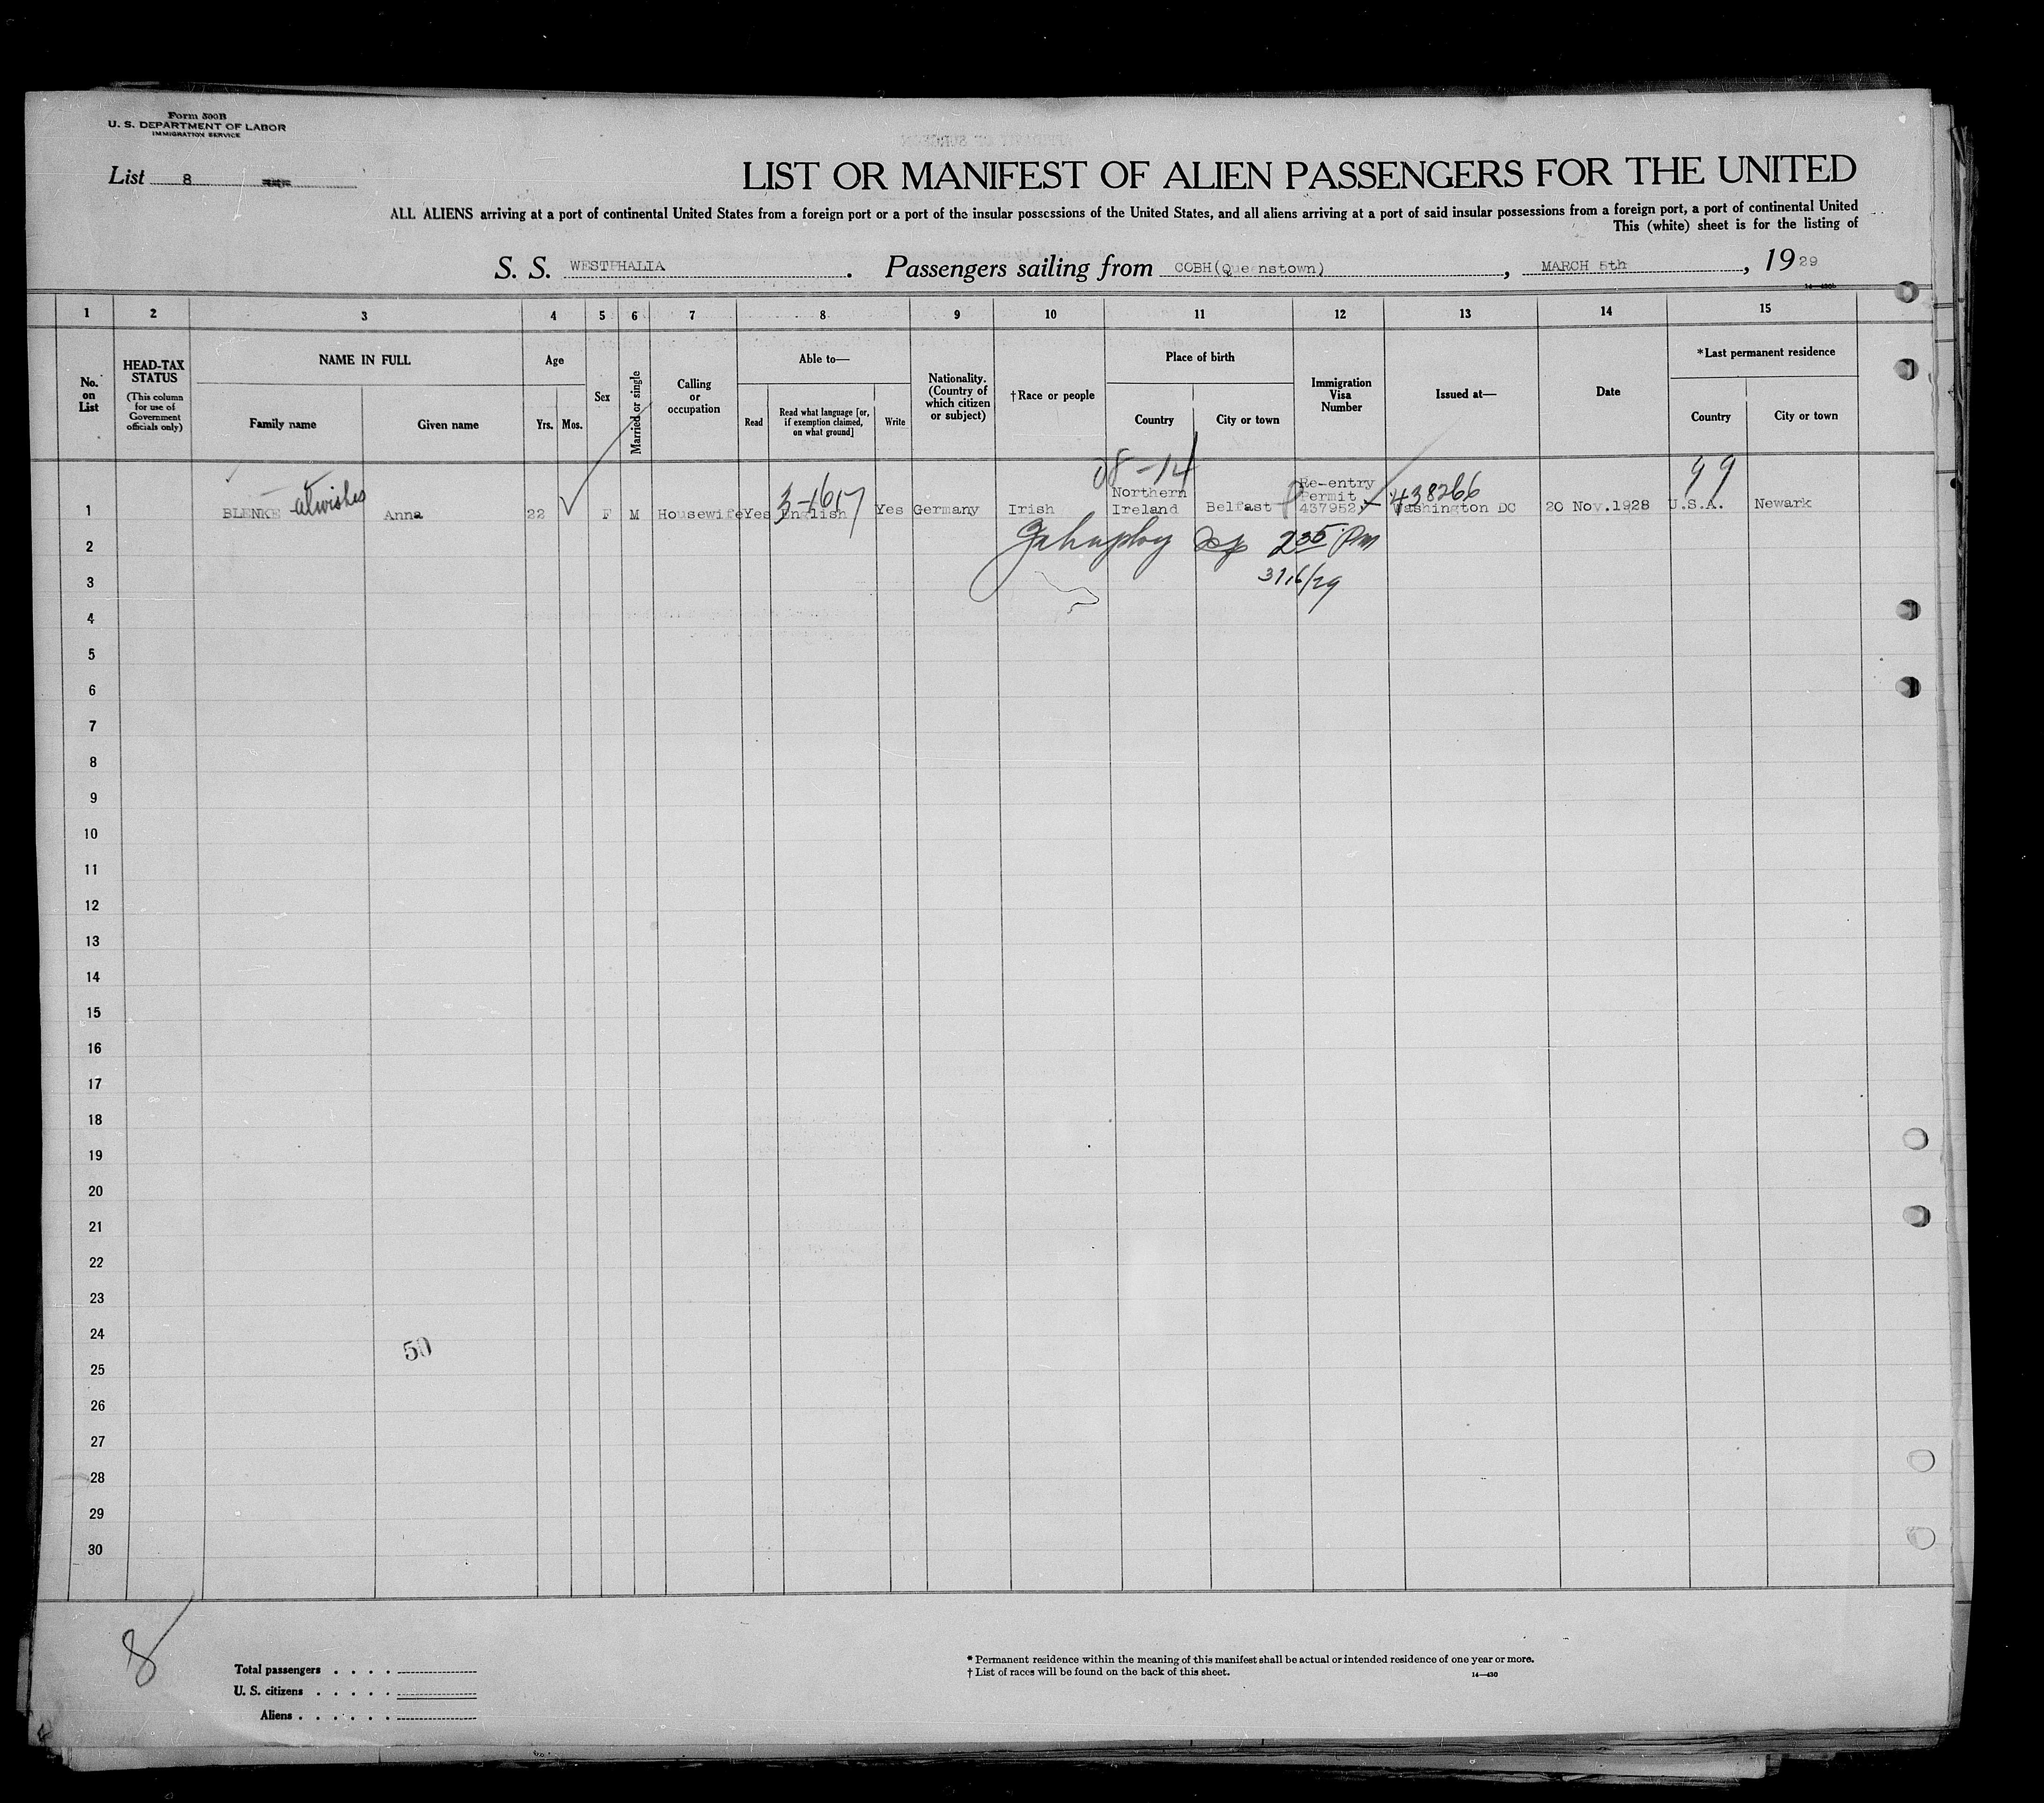 Form 500B
U. S. DEPARTMENT OF LABOR
IMMIGRATION SERVICE
List 8
LIST OR MANIFEST OF ALIEN PASSENGERS FOR THE UNITED
ALL ALIENS arriving at a port of continental United States from a foreign port or a port of the insular possessions of the United States, and all aliens arriving at a port of said insular possessions from a foreign port, a port of continental United
This (white) sheet is for the listing of
S. S. WESTPHALIA. Passengers sailing from COBH(Queenstown), MARCH 5th, 1929
1 2 3 4 5 6 7 8 9 10 11 12 13 14 15
No. on List
HEAD-TAX STATUS
(This column for use of Government officials only)
NAME IN FULL
Family name
Given name
Age
Yrs.
Mos.
Sex
Married or single
Calling or occupation
Able to—
Read
Read what language [or, if exemption claimed, on what ground]
Write
Nationality. (Country of which citizen or subject)
†Race or people
Place of birth
Country
City or town
Immigration Visa Number
Issued at—
Date
*Last permanent residence
Country
City or town
08-14
99
1 BLENKE Anna 22 F M Housewife Yes English Yes Germany Irish Northern Ireland Belfast Re-entry Permit 437952 Washington DC 20 Nov.1928 U.S.A. Newark
3-1617
438266
2
235 Pm
3
4
5
6
7
8
9
10
11
12
13
14
15
16
17
18
19
20
21
22
23
24
50
25
26
27
28
29
30
8
Total passengers
U. S. citizens
Aliens
* Permanent residence within the meaning of this manifest shall be actual or intended residence of one year or more.
† List of races will be found on the back of this sheet.
14—430